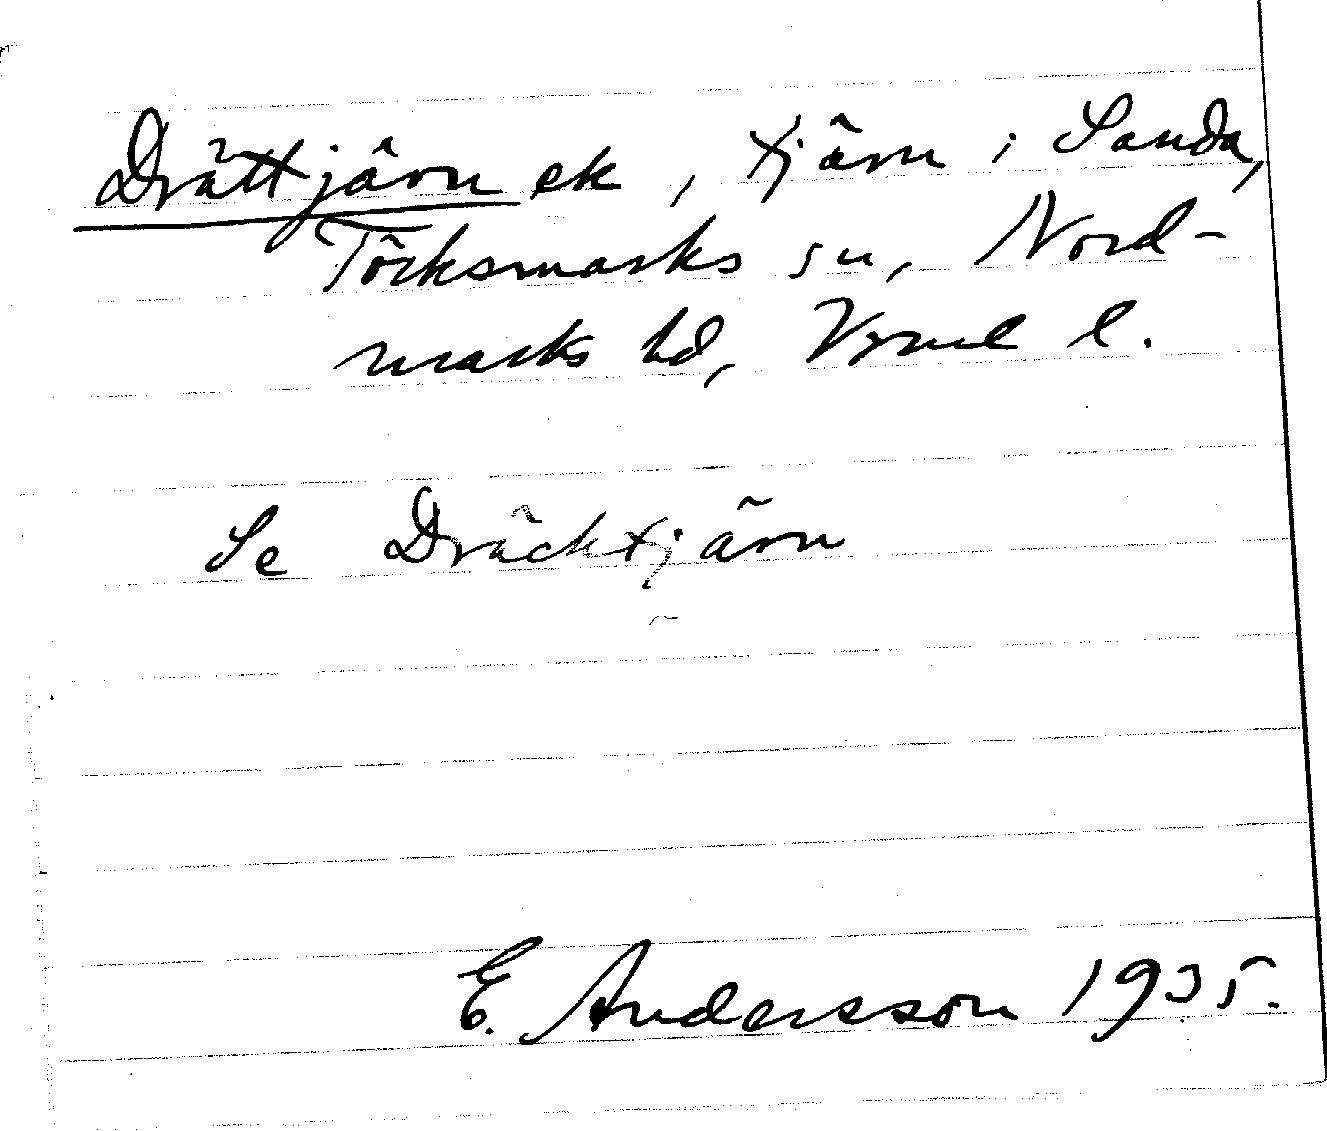 Drättjärn ek, tjärn i Sanda,
Töcksmarks sn, Nord-
marks hd, Vrml l.
Se Dräcktjärn
E. Andersson 1935.